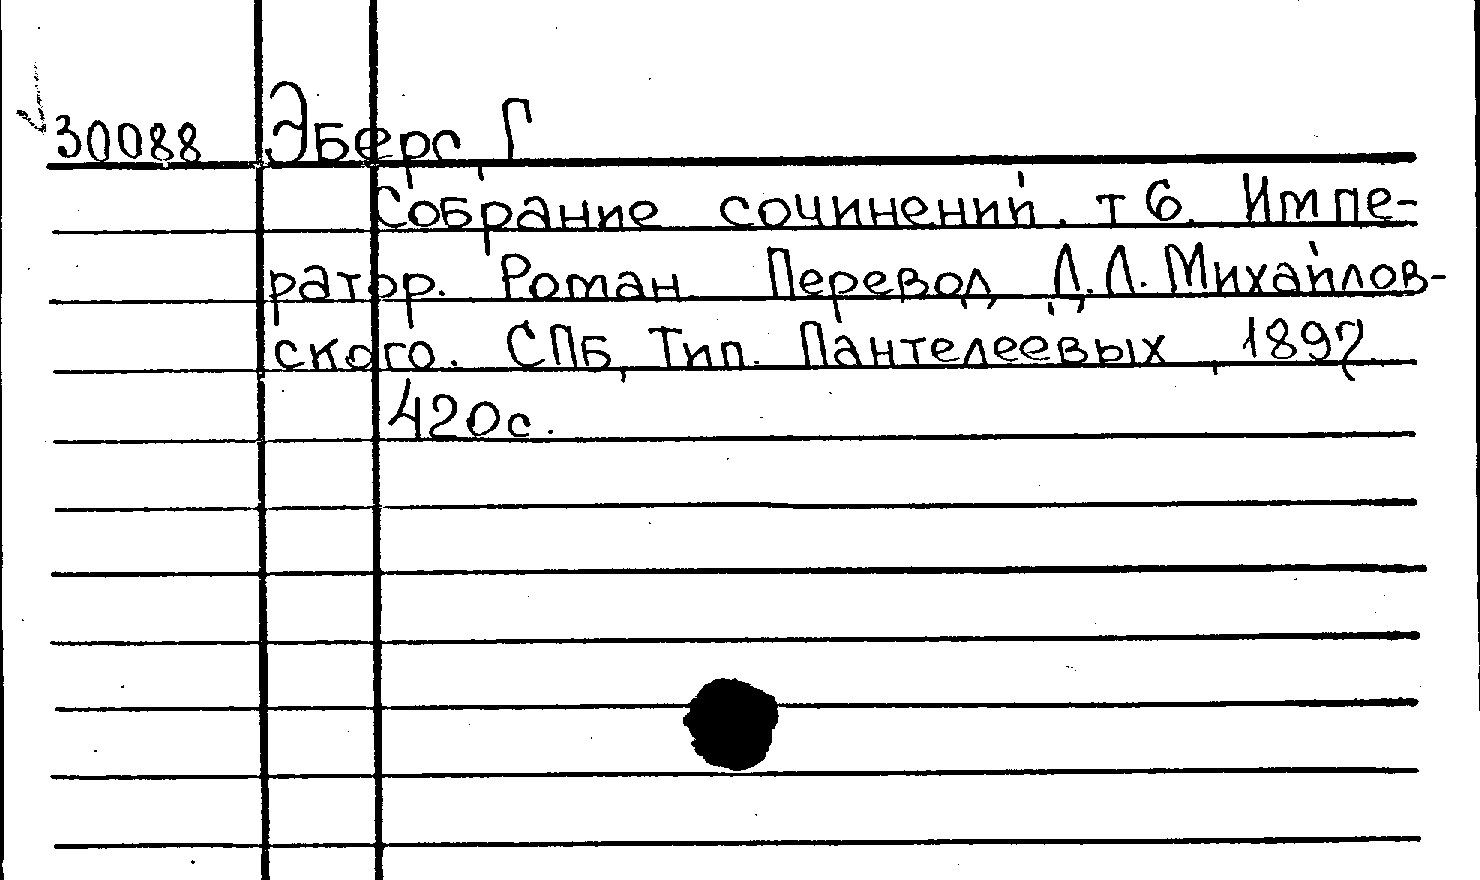 30088 Эберс, Г
Собрание сочинений. т 6. Импе-
ратор. Роман Перевод Д.Л. Михайлов-
ского. СПБ, Тип. Пантелеевых, 1897
420с.